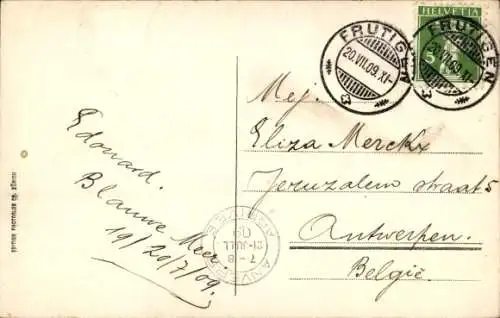 HELVETIA
5
FRUTIGEN
20.VII.09.XI-
3
FRUTIGEN
20.VII.09.XI-
3
Mej.
Eliza Merckx
Jeruzalem straat 5
Antwerpen.
België.
Edouard.
Blauwe Meer
19/20/7/09.
ANVERS
7-8
21-JUIL
09